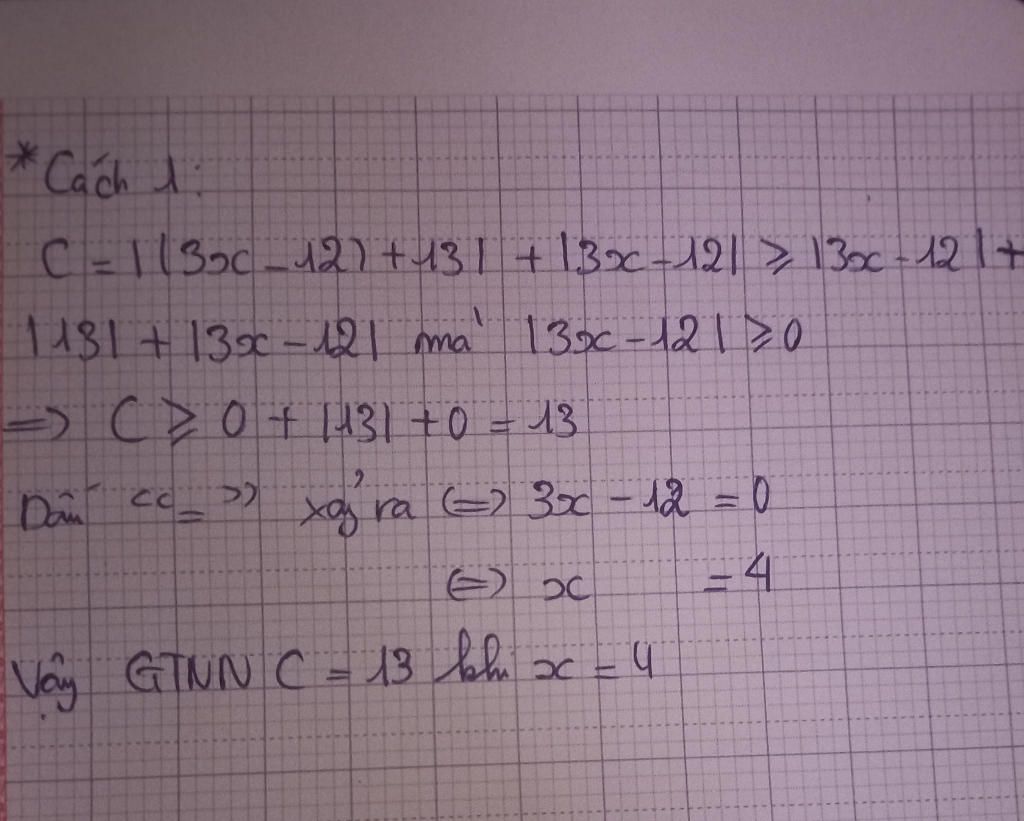 * Cách 1:
C = |(3x - 12) + 13| + |3x - 12| ≥ |3x - 12| +
|13| + |3x - 12| mà |3x - 12| ≥ 0
=> C ≥ 0 + |13| + 0 = 13
Dấu "=" xảy ra <=> 3x - 12 = 0
<=> x = 4
Vậy GTNN C = 13 khi x = 4